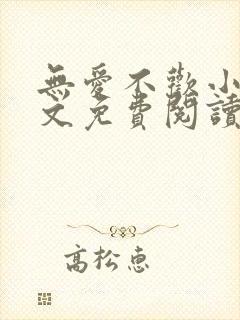 無愛不歡小
文免費閱讀
高松惠